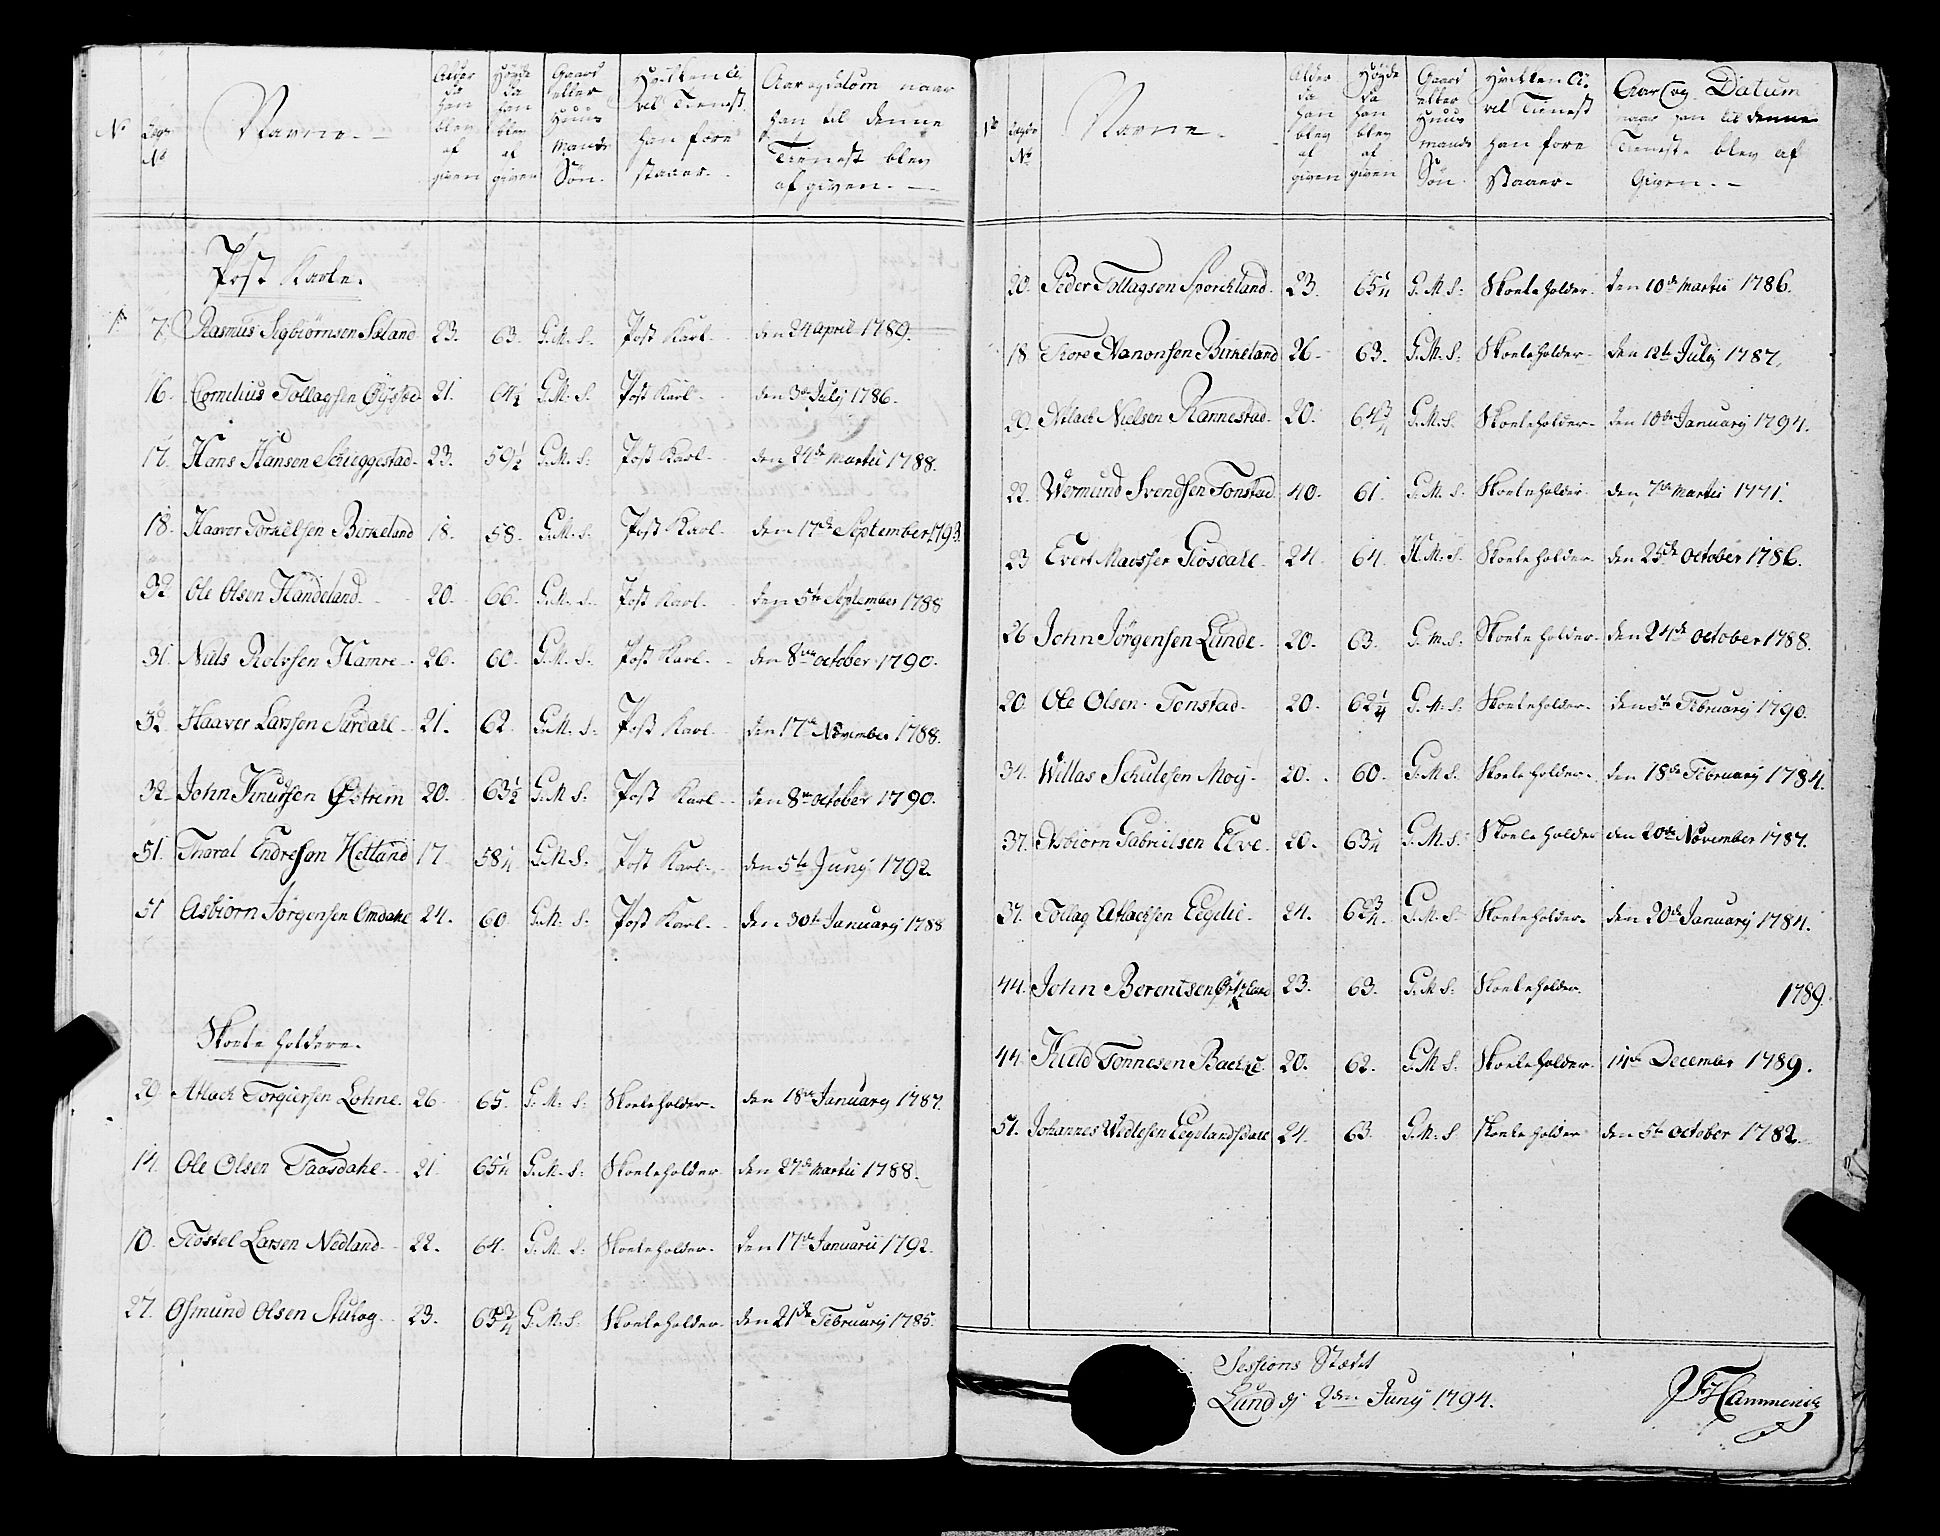 No | Lægs No | Navne. | Alder da han blev af given | Høyde da han blev af given | Gaard eller Huus mands Søn. | Hvilken Ci vil Tienest han fore staaer. | Aar og datum naar han til denne Tienest blev af given.
Post Karle.
1 | 7. | Rasmus Sigbiørnsen Seland | 23. | 63. | G. M. S. | Post Karl. | den 24 april 1789.
16. | Cornelius Tollagsen Øysted | 21. | 64 1/2 | G. M. S. | Post Karl. | den 3de July 1786.
17. | Hans Hansen Schieggestad. | 23. | 59 1/2 | G. M. S. | Post Karl. | den 24de Martii 1788.
18. | Haavor Torkelsen Birkeland | 18. | 58. | G. M. S. | Post Karl. | den 17de September 1793.
32. | Ole Olsen Handeland. | 20. | 66. | G. M. S. | Post Karl. | den 5te September 1788
31. | Niels Rolvsen Hamre. | 26. | 60. | G. M. S. | Post Karl. | den 8de october 1790.
32. | Haaver Larssen Surdall | 21. | 62. | G. M. S. | Post Karl. | den 17de November 1788.
32. | John Knudsen Østrem | 20. | 63 1/2 | G. M. S. | Post Karl. | den 8de october 1790.
51. | Tharal Endresen Hetland | 17 | 58 1/4 | G. M. S. | Post Karl. | den 5te Juny 1792.
51 | Asbiorn Jørgensen Omdahl | 24. | 60. | G. M. S. | Post Karl. | den 30te January 1788
Skoele holdere.
29 | Atlack Torgiersen Lohne. | 26 | 65. | G. M. S. | Skoeleholder. | den 18de January 1787.
14. | Ole Olsen Taasdahl. | 21. | 65 1/4 | G. M. S. | Skoeleholder | den 27de Martii 1788.
10. | Tiostel Larsen Nedland. | 22. | 64. | G. M. S. | Skoeleholder. | den 17de Januarii 1792.
27. | Osmund Olsen Stulog. | 23. | 63 3/4 | G. M. S. | Skoeleholder. | den 21de February 1785.
No | Lægds No | Navne. | Alder da han blev af given | Høyde da han blev af given | Gaard eller Huus mands Søn. | Hvilken Ci vil Tienest han fore staaer. | Aar og Datum naar han til denne Tieneste blev af Given.
20. | Peder Tollagsen Sporckland. | 23. | 65 1/4 | G. M. S. | Skoeleholder. | den 10de Martii 1786.
18. | Tiore Aanonsen Birkeland | 26. | 63. | G. M. S. | Skoeleholder. | den 12te July 1787.
29. | Atlack Nielsen Rannestad. | 20. | 64 3/4 | G. M. S. | Skoeleholder. | den 10de January 1794.
22. | Wermund Svendsen Tonstad | 40. | 61. | G. M. S. | Skoeleholder. | den 7de Martii 1771.
23 | Evert Maossen Giosdall. | 24. | 64. | H. M. S. | Skoeleholder. | den 25de october 1786.
26 | John Jørgensen Lunde. | 20. | 63. | G. M. S. | Skoeleholder. | den 24de october 1788.
20. | Ole Olsen Tonstad. | 20. | 62 1/4 | G. M. S. | Skoeleholder. | den 5te February 1790.
34. | Willas Schulesen Moy. | 20. | 60. | G. M. S. | Skoeleholder. | den 18de February 1784.
37. | Asbiorn Gabrielsen Elve. | 20. | 63 1/4 | G. M. S. | Skoeleholder | den 20de November 1787.
37. | Tollag Atlachsen Eegelie. | 24. | 62 3/4 | G. M. S. | Skoeleholder. | den 20de January 1784.
44. | John Berentsen | 23. | 63. | G. M. S. | Skoeleholder. | 1789.
44. | Kield Tonnesen Backe | 20. | 62. | G. M. S. | Skoeleholder. | 14de December 1789.
51. | Johannes Wedlesen Eegelandsdall | 24. | 63. | G. M. S. | Skoeleholder | den 5te october 1782.
Sessions Stædet
Lund dj 2den Juny 1794.